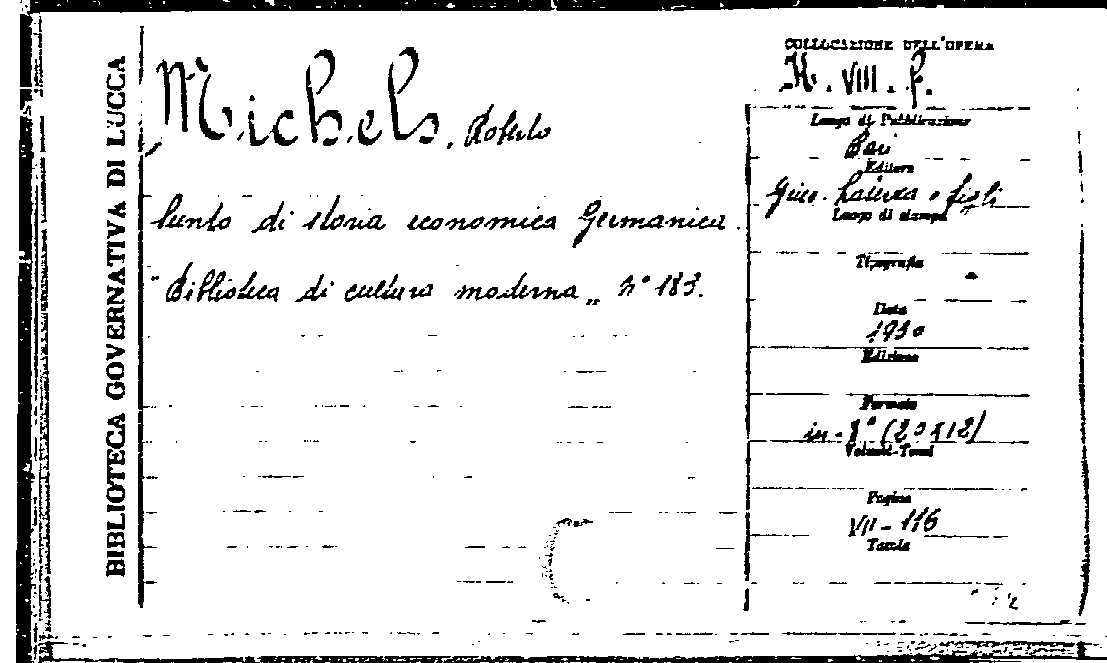 BIBLIOTECA GOVERNATIVA DI LUCCA
Michels, Roberto
Cenno di storia economica Germanica.
"Biblioteca di cultura moderna„ N° 183.
COLLOCAZIONE DELL'OPERA
H. VIII. f.
Luogo di Pubblicazione
Bari
Editore
Gius. Laterza e figli
Luogo di stampa
Tipografia
Data
1930
Edizione
Formato
in-8° (20x12)
Volumi-Tomi
Pagine
VII-116
Tavole